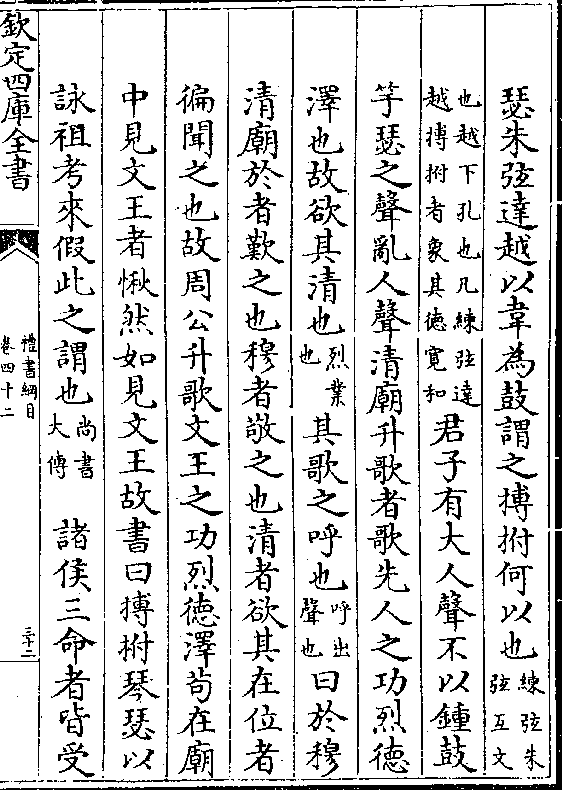 瑟朱弦達越以韋為鼓謂之摶拊何以也練弦朱弦互文
也越下孔也凡練弦達越摶拊者象其德寛和君子有大人聲不以鍾鼓
竽瑟之聲亂人聲清廟升歌者歌先人之功烈德
澤也故欲其清也烈業也其歌之呼也呼出聲也曰於穆
清廟於者歎之也穆者敬之也清者欲其在位者
徧聞之也故周公升歌文王之功烈德澤苟在廟
中見文王者愀然如見文王故書曰摶拊琴瑟以
詠祖考來假此之謂也尚書大傳 諸侯三命者皆受
欽定四庫全書
禮書綱目
卷四十二
三十二